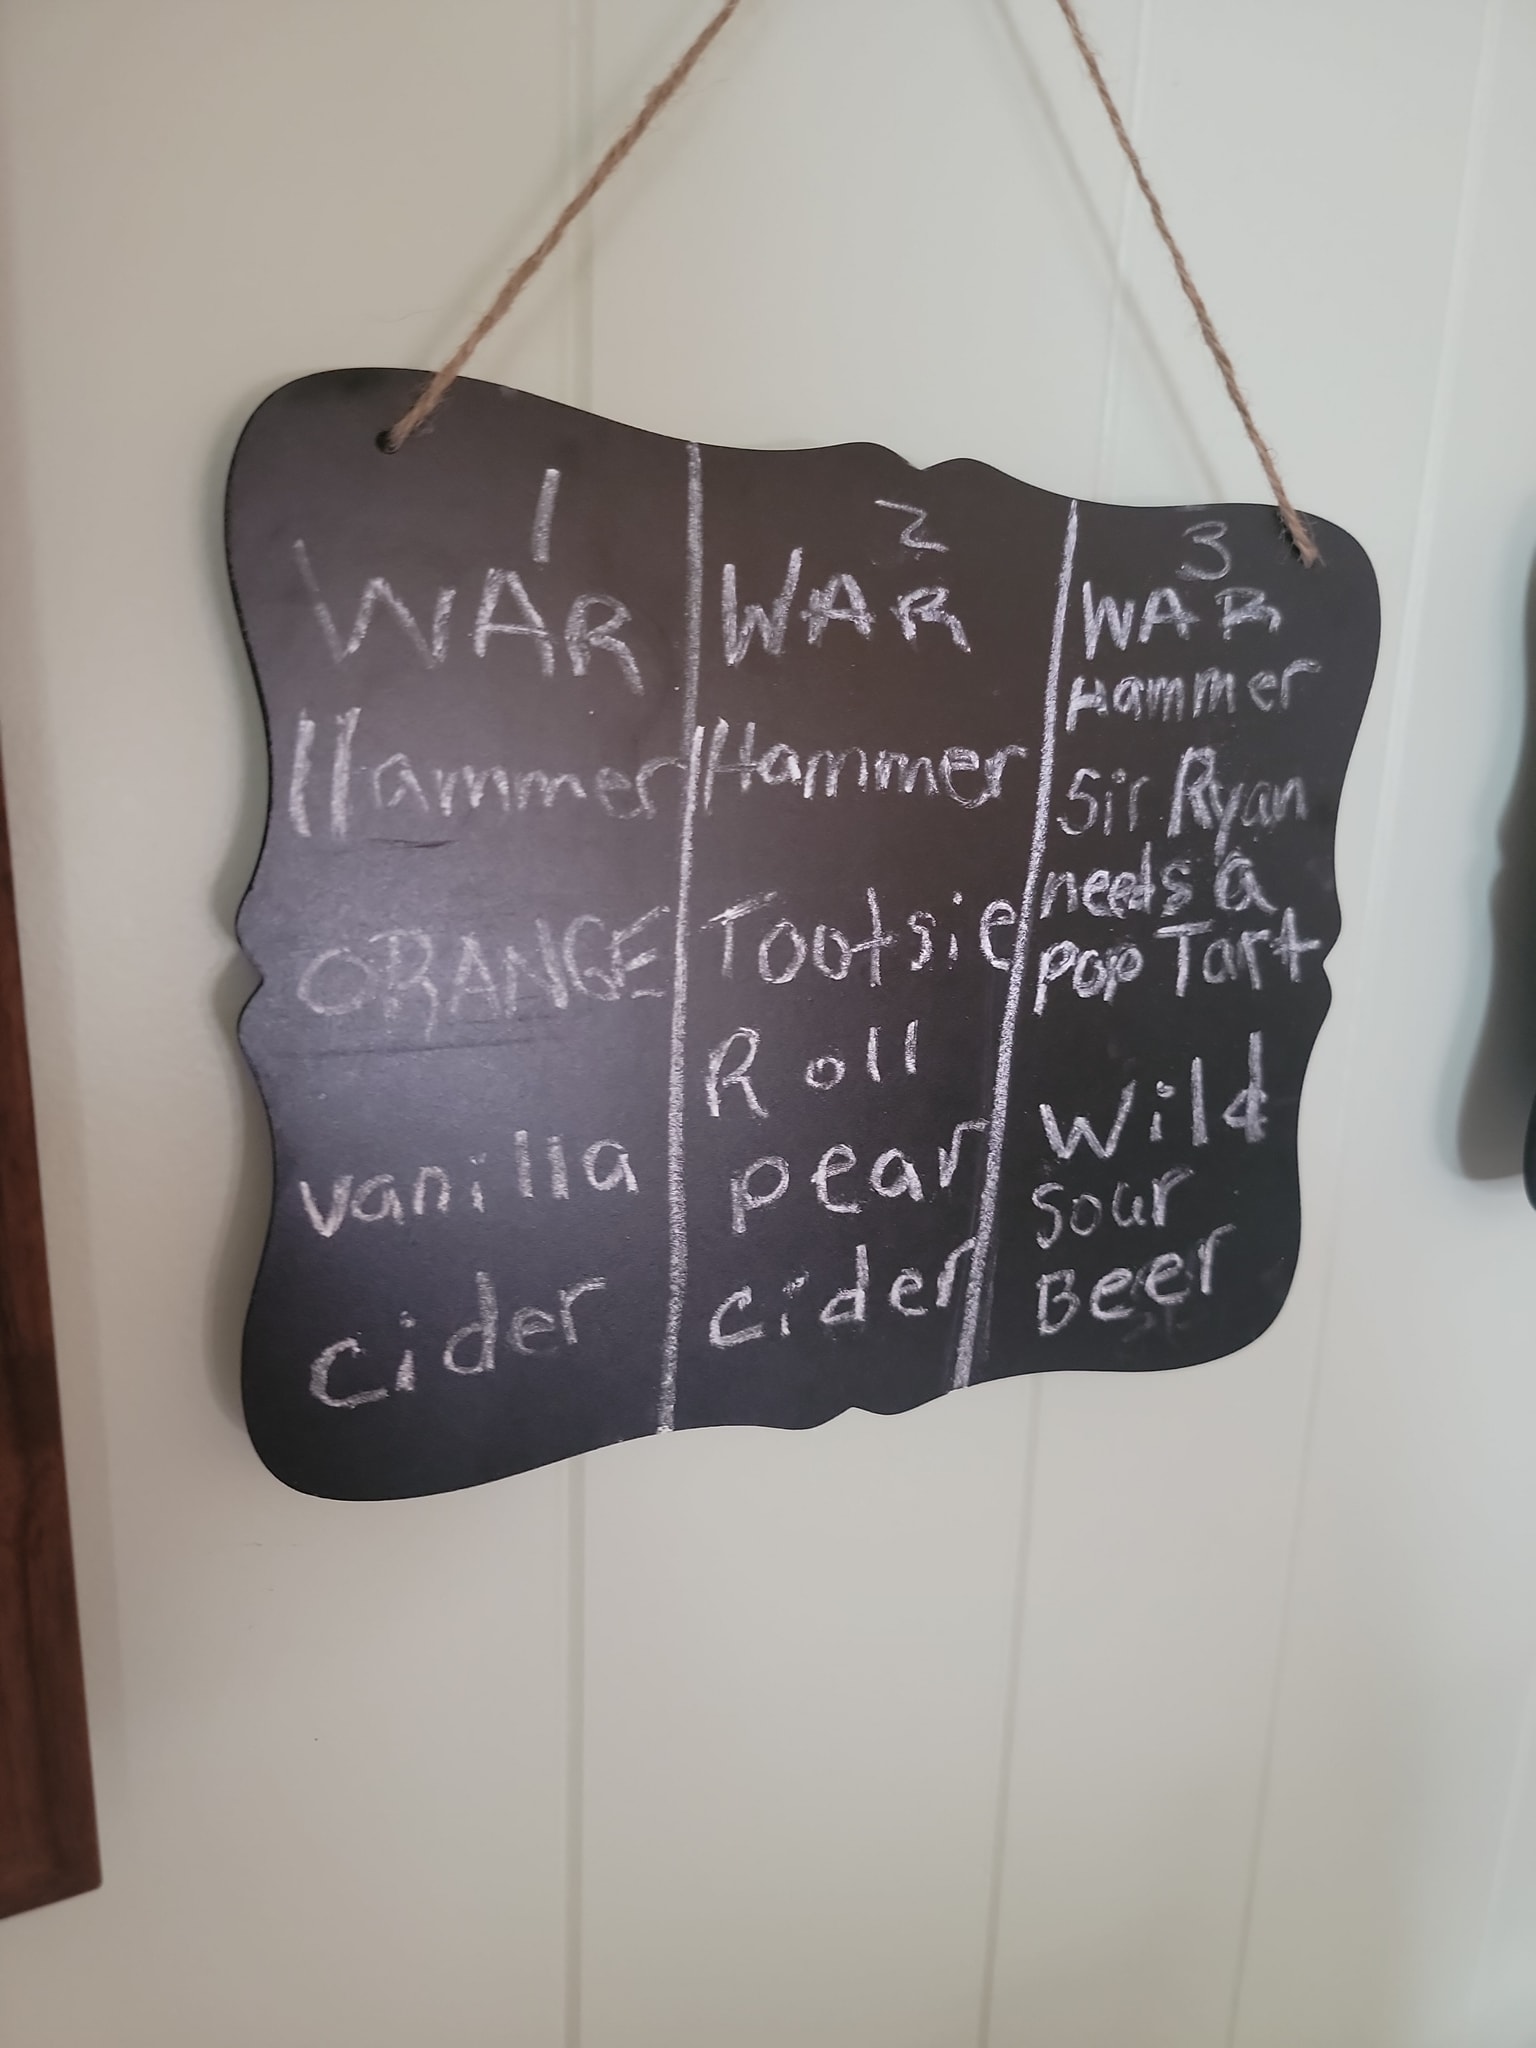 1
WAR
Hammer
ORANGE
vanilla
cider
2
WAR
Hammer
Tootsie
Roll
pear
cider
3
WAR
Hammer
Sir Ryan
needs a
pop Tart
Wild
Sour
Beer